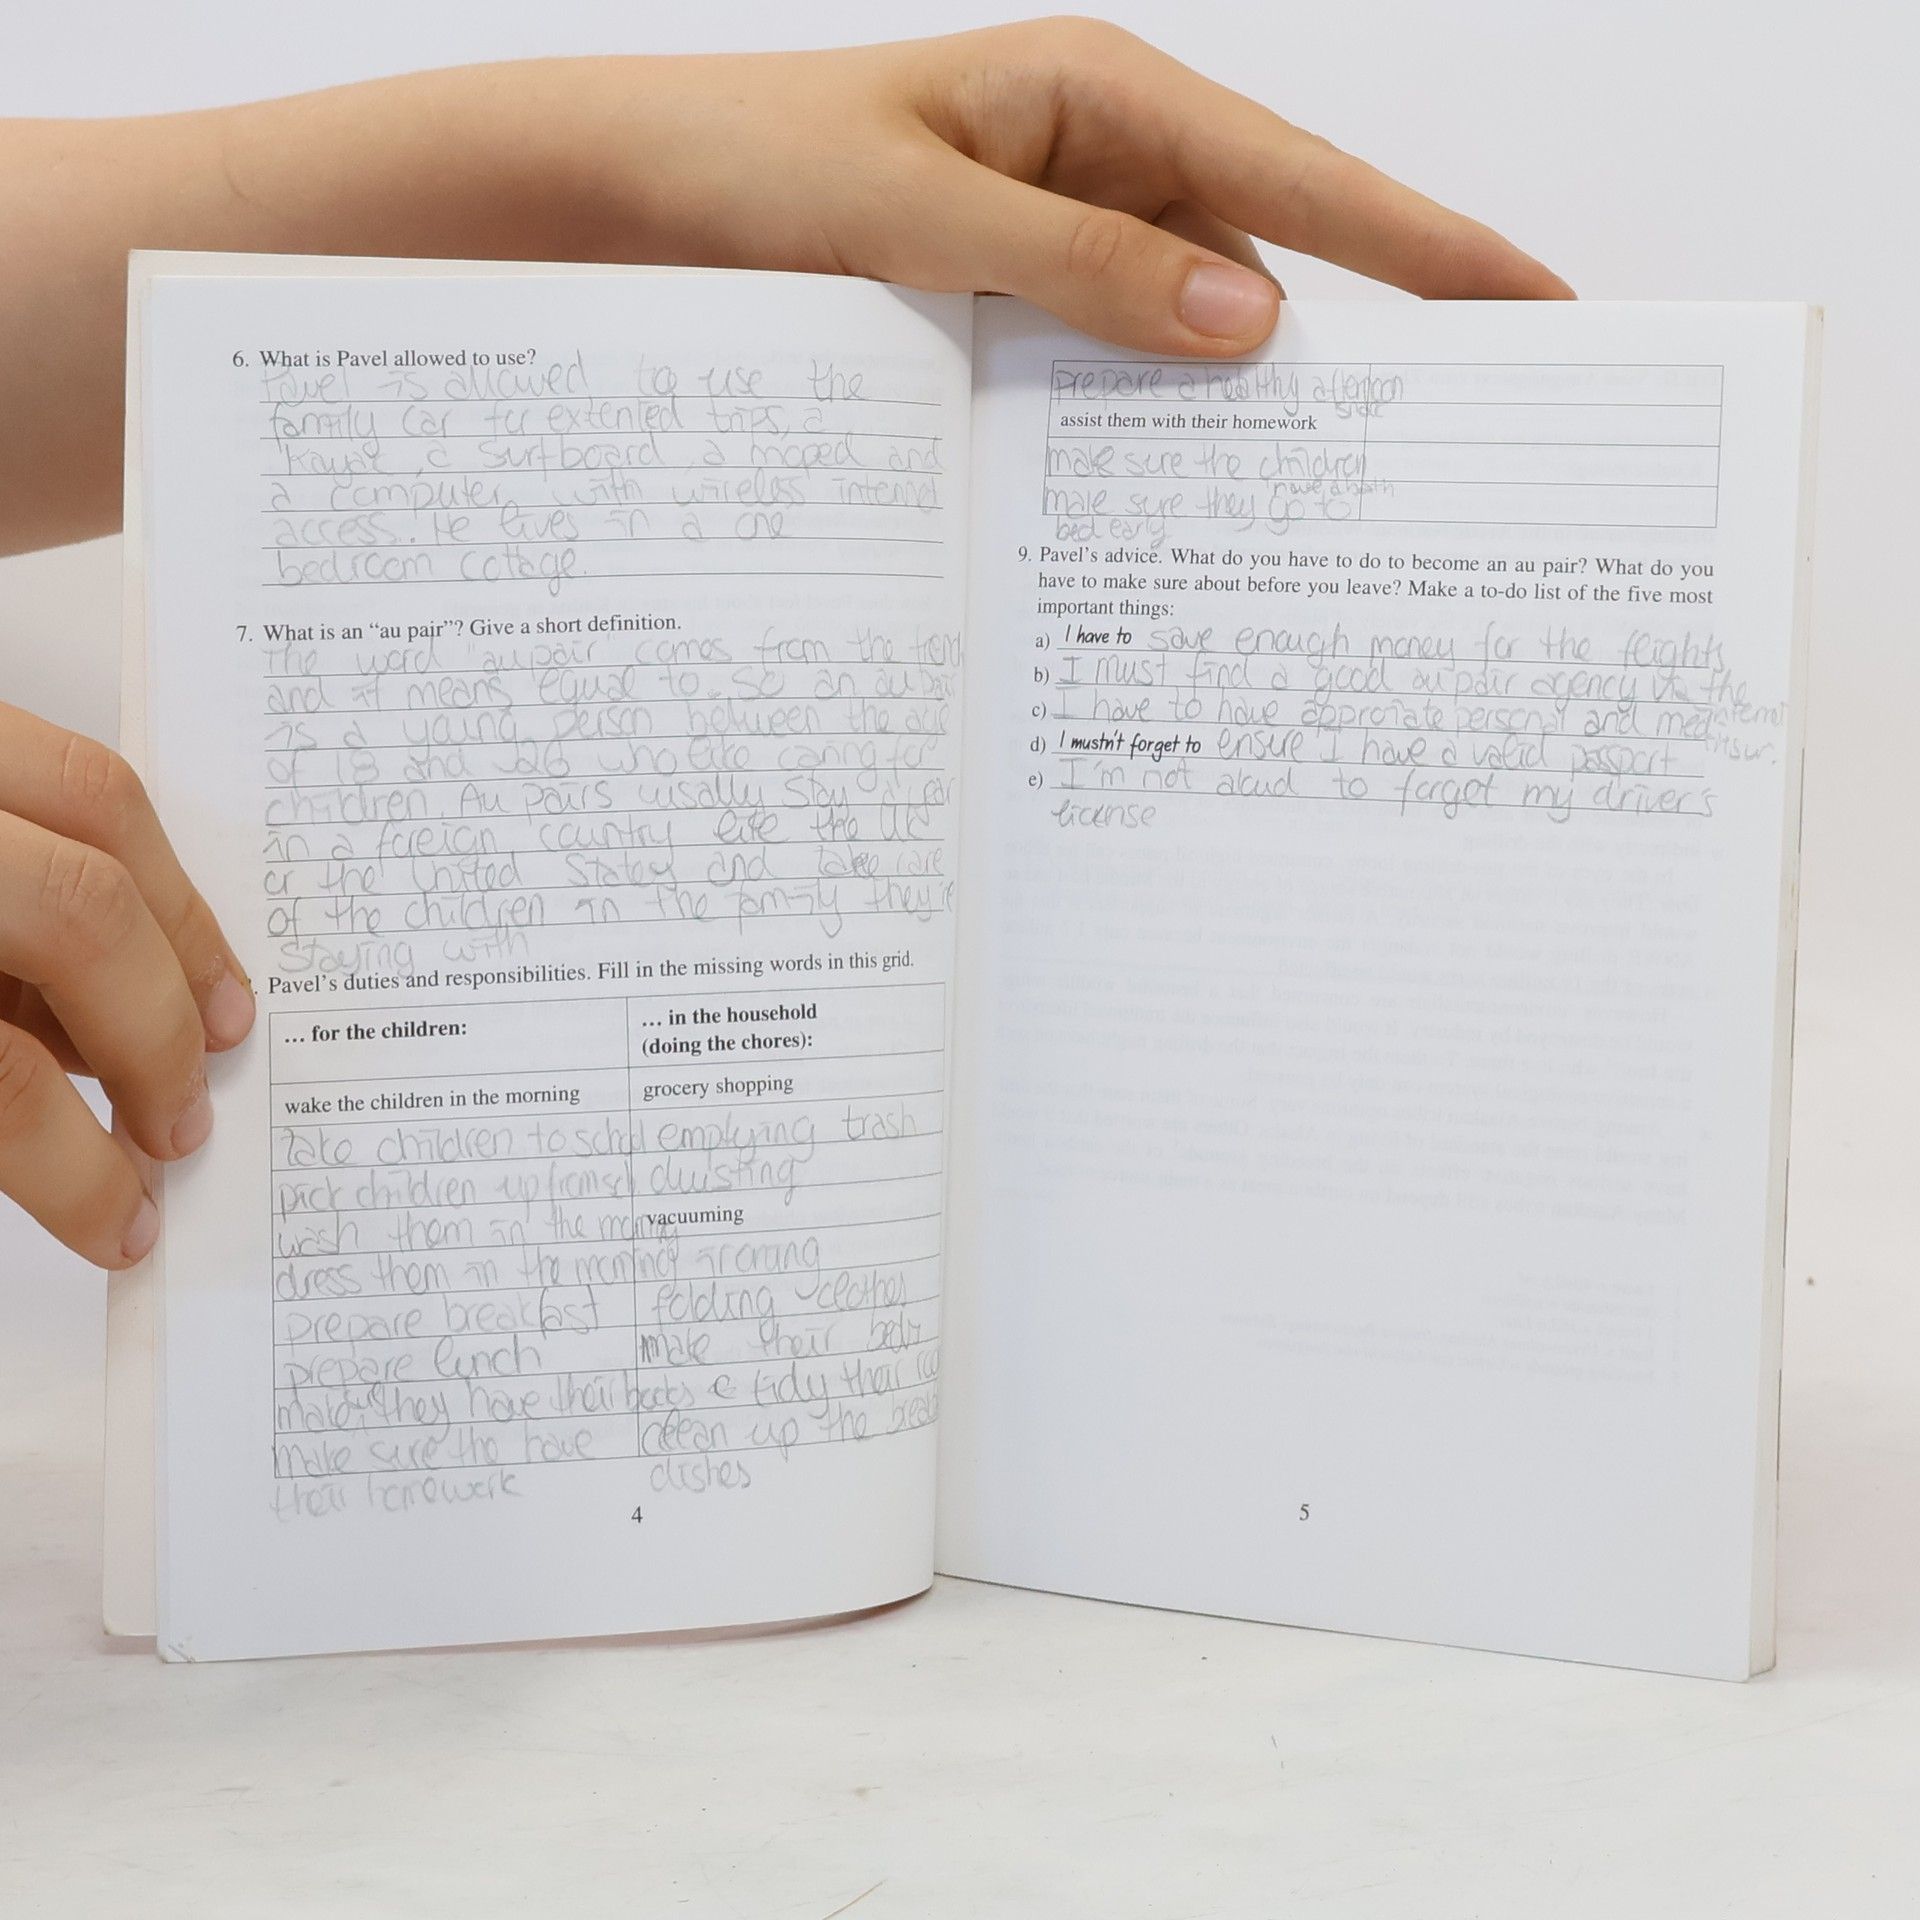 6. What is Pavel allowed to use?
Pavel is allowed to use the
family car for extented trips, a
kayak, a surfboard, a moped and
a computer with wireless internet
access. He lives in a one
bedroom cottage.
7. What is an “au pair”? Give a short definition.
The word "au pair" comes from the
and it means equal to. So an au pair
is a young person between the age
of 18 and 26 who like caring for
children. Au pairs usally stay a year
in a foreign country like the UK
or the United States and take care
of the children in the family they're
staying with
. Pavel’s duties and responsibilities. Fill in the missing words in this grid.
… for the children:
… in the household
(doing the chores):
wake the children in the morning
grocery shopping
take children to school
emptying trash
pick children up from
dusting
wash them in the morning
vacuuming
dress them in the morning
ironing
prepare breakfast
folding clothes
prepare lunch
make their beds
make sure they have their books
tidy their
make sure the have
clean up the
their homework
dishes
4
prepare a healthy afternoon
snack
assist them with their homework
make sure the children
have a bath
make sure they go to
bed early
9. Pavel’s advice. What do you have to do to become an au pair? What do you
have to make sure about before you leave? Make a to-do list of the five most
important things:
a) I have to save enough money for the flights
b) I must find a good au pair agency via the
internet
c) I have to have approriate personal and med. insur.
d) I mustn't forget to ensure I have a valid passport
e) I'm not aloud to forget my driver's
license
5